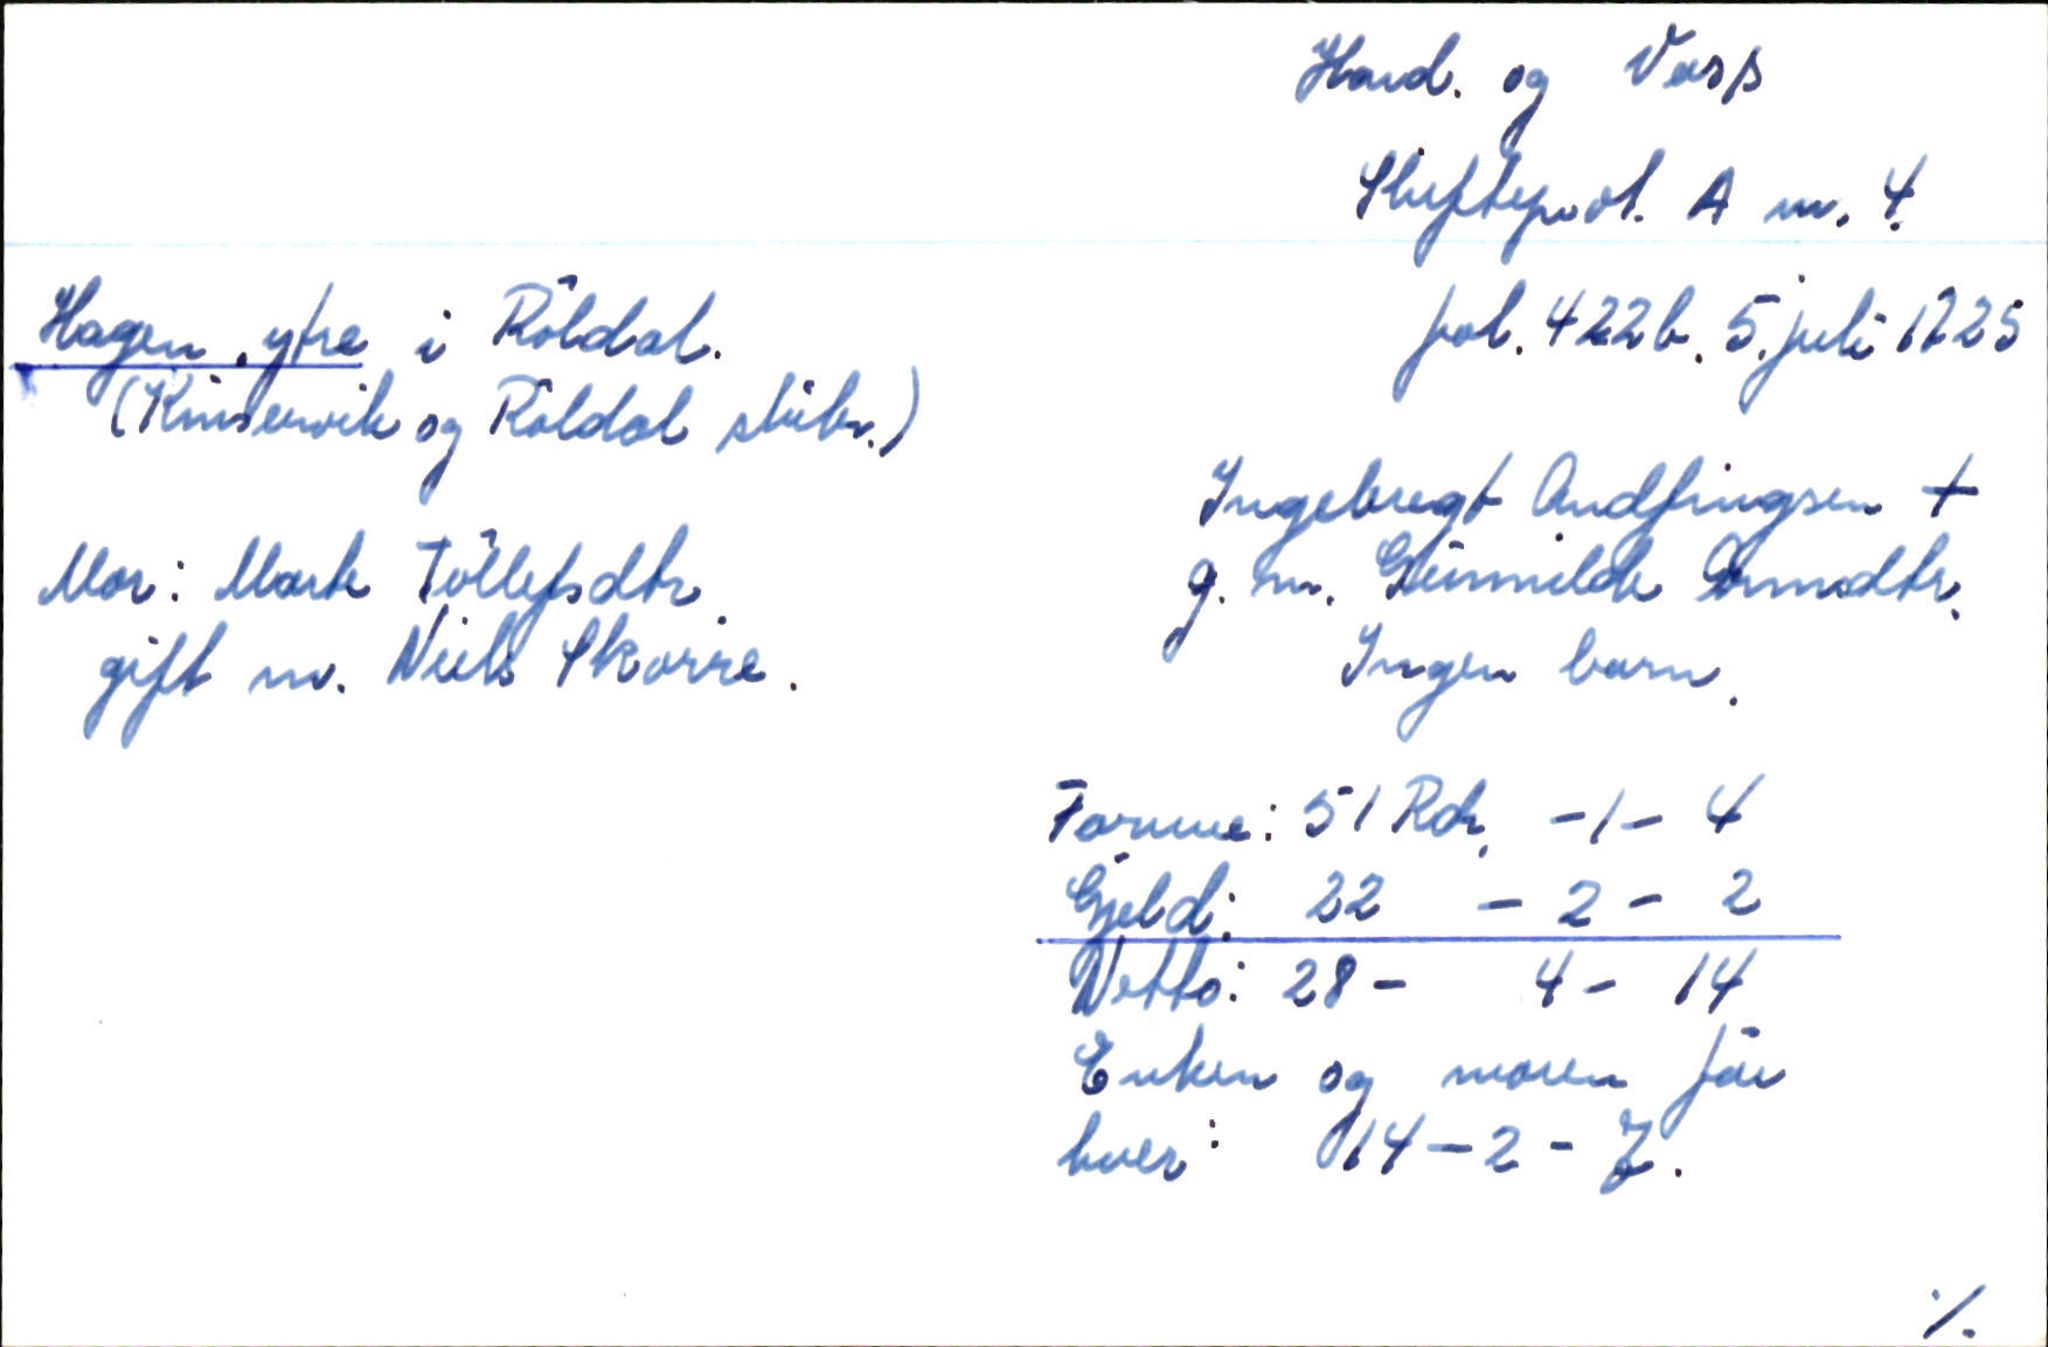 Hard. og Voss
Skifteprot. A nr. 4.
fol. 422b. 5. juli 1725
Hagen, ytre i Röldal.
(Kinservik og Röldal skibr.)
Ingebregt Andfingsen +
g. m. Günnilde Ormsdtr.
Ingen barn.
Mor: Marte Töllefsdtr.
gift m. Niels Skorre.
Formue: 51 Rdr. - 1 - 4
Gjeld: 22 - 2 - 2
Netto: 28 - 4 - 14
Enken og moren får
hver: 14 - 2 - 7.
·/.